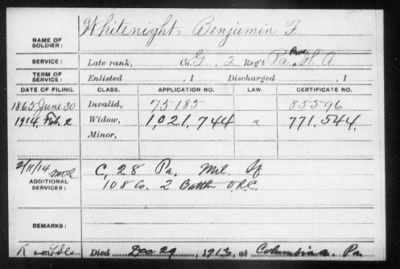 NAME OF SOLDIER: Whitenight, Benjamin F.
SERVICE: Late rank, Co. G, 2 Reg't Pa. H. A.
TERM OF SERVICE: Enlisted , 1 Discharged , 1
DATE OF FILING. CLASS. APPLICATION NO. LAW. CERTIFICATE NO.
1865 June 30 Invalid, 75185 85596
1914, Feb. 2 Widow, 1,021,744 771,544.
Minor,
2/11/14
ADDITIONAL SERVICES: C, 28 Pa. Mil. Inf
108 Co. 2 Battn V.R.C.
REMARKS:
Died Dec 29, 1913, at Columbia, Pa.